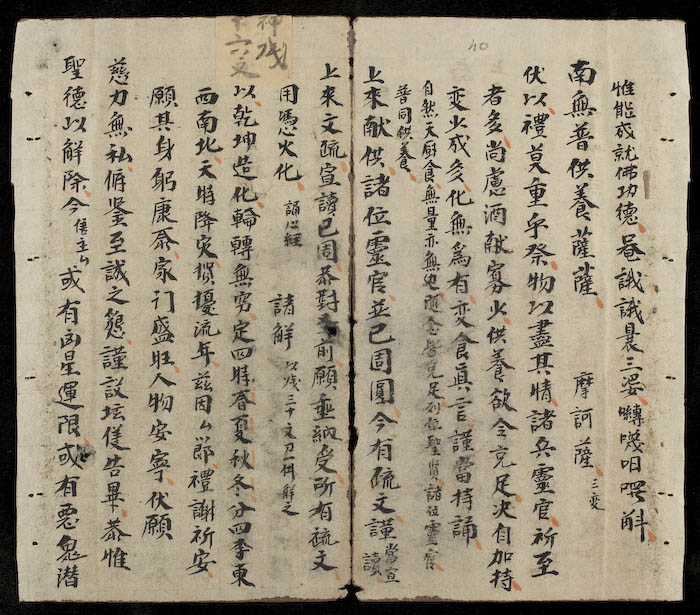 惟能成就佛功德唵誐誐曩三婆嚩韈呬吽斛
南無普供養菩薩 摩訶薩 三变
伏以禮莫重乎祭物以盡其情諸兵靈官祈至
者多尚慮酒献寡少供養欲令充足决自加持
变少成多化無為有变食真言謹當持誦
自然天厨食無量亦無边随念皆充足列位聖賢諸位靈官
普同供養
上來献供諸位靈官並已周圓今有疏文謹當宣讀
上來文疏宣讀已周恭對 前願垂納受所有疏文
用憑火化 誦心經 諸解 以钱三十文刀一柄解之
以乾坤造化輪轉無窮定四時春夏秋冬分四季東
西南北天時降灾損擾流年茲因ム節禮謝祈安
願其身躬康泰家门盛旺人物安寧伏願
慈力無私俯鉴至誠之懇謹設坛仪告畢恭惟
聖德以解除今信主ム或有凶星運限或有恶鬼潜
神钱
十六文
40